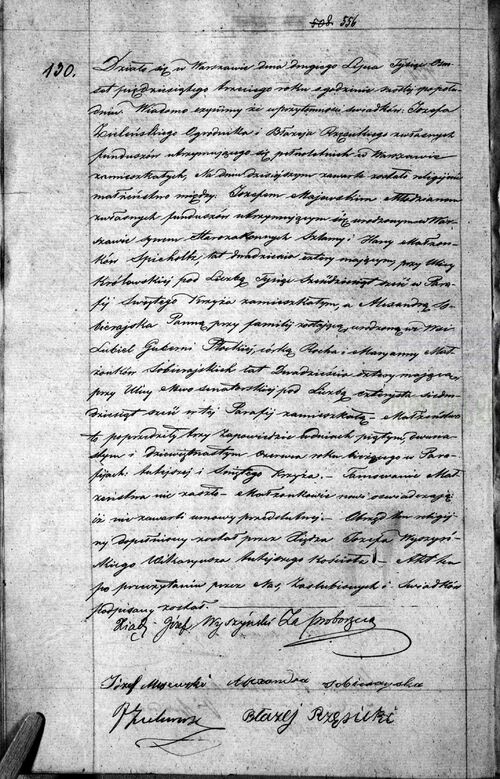 508. 556
130. Działo się w Warszawie dnia drugiego Lipca Tysiąc Ośm-
set pięćdziesiątego trzeciego roku o godzinie szóstej po połu-
dniu. Wiadomo czynimy że w przytomności świadków, Józefa
Zielińskiego Ogrodnika i Błażeja Rzępickiego z własnych
funduszów utrzymującego się pełnoletnich w Warszawie
zamieszkałych, Na dniu dzisiejszym zawarte zostało religijne
małżeństwo między Józefem Majewskim Młodzianem
z własnych funduszów utrzymującym się urodzonym w War-
szawie synem Starozakonnych Szlamy i Hany Małżon-
ków Spicholtz, lat dwadzieścia cztery mającym, przy Ulicy
Królewskiej pod Liczbą Tysiąc Sześćdziesiąt sześć w Para-
fij Świętego Krzyża zamieszkałym, a Alexandrą So-
bierajską Panną przy familij zostającą, urodzoną we Wsi
Lubiel Gubernij Płockiej, córką Rocha i Maryanny Mał-
żonków Sobierajskich lat Dwadzieścia cztery mającą,
przy Ulicy Nowo senatorskiej pod Liczbą czterysta siedm-
dziesiąt sześć w tej Parafij zamieszkałą – Małżeństwo
to poprzedziły trzy Zapowiedzie w dniach piątym, dwuna-
stym i dziewiętnastym Czerwca roku bieżącego w Para-
fijach tutejszej i Świętego Krzyża. – Tamowanie Mał-
żeństwa nie zaszło – Małżonkowie nowi oświadczają
iż nie zawarli umowy przedślubnej. – Obrzęd ten religij-
ny dopełniony został przez Księdza Józefa Wyszyń-
skiego Wikaryusza tutejszego Kościoła. – Akt ten
po przeczytaniu przez Nas, Zaślubionych i Świadków
podpisany został.
Xiądz Józef Wyszyński Za Proboszcza
Józef Majewski Alexandra Sobierayska
Błażej Rzępicki